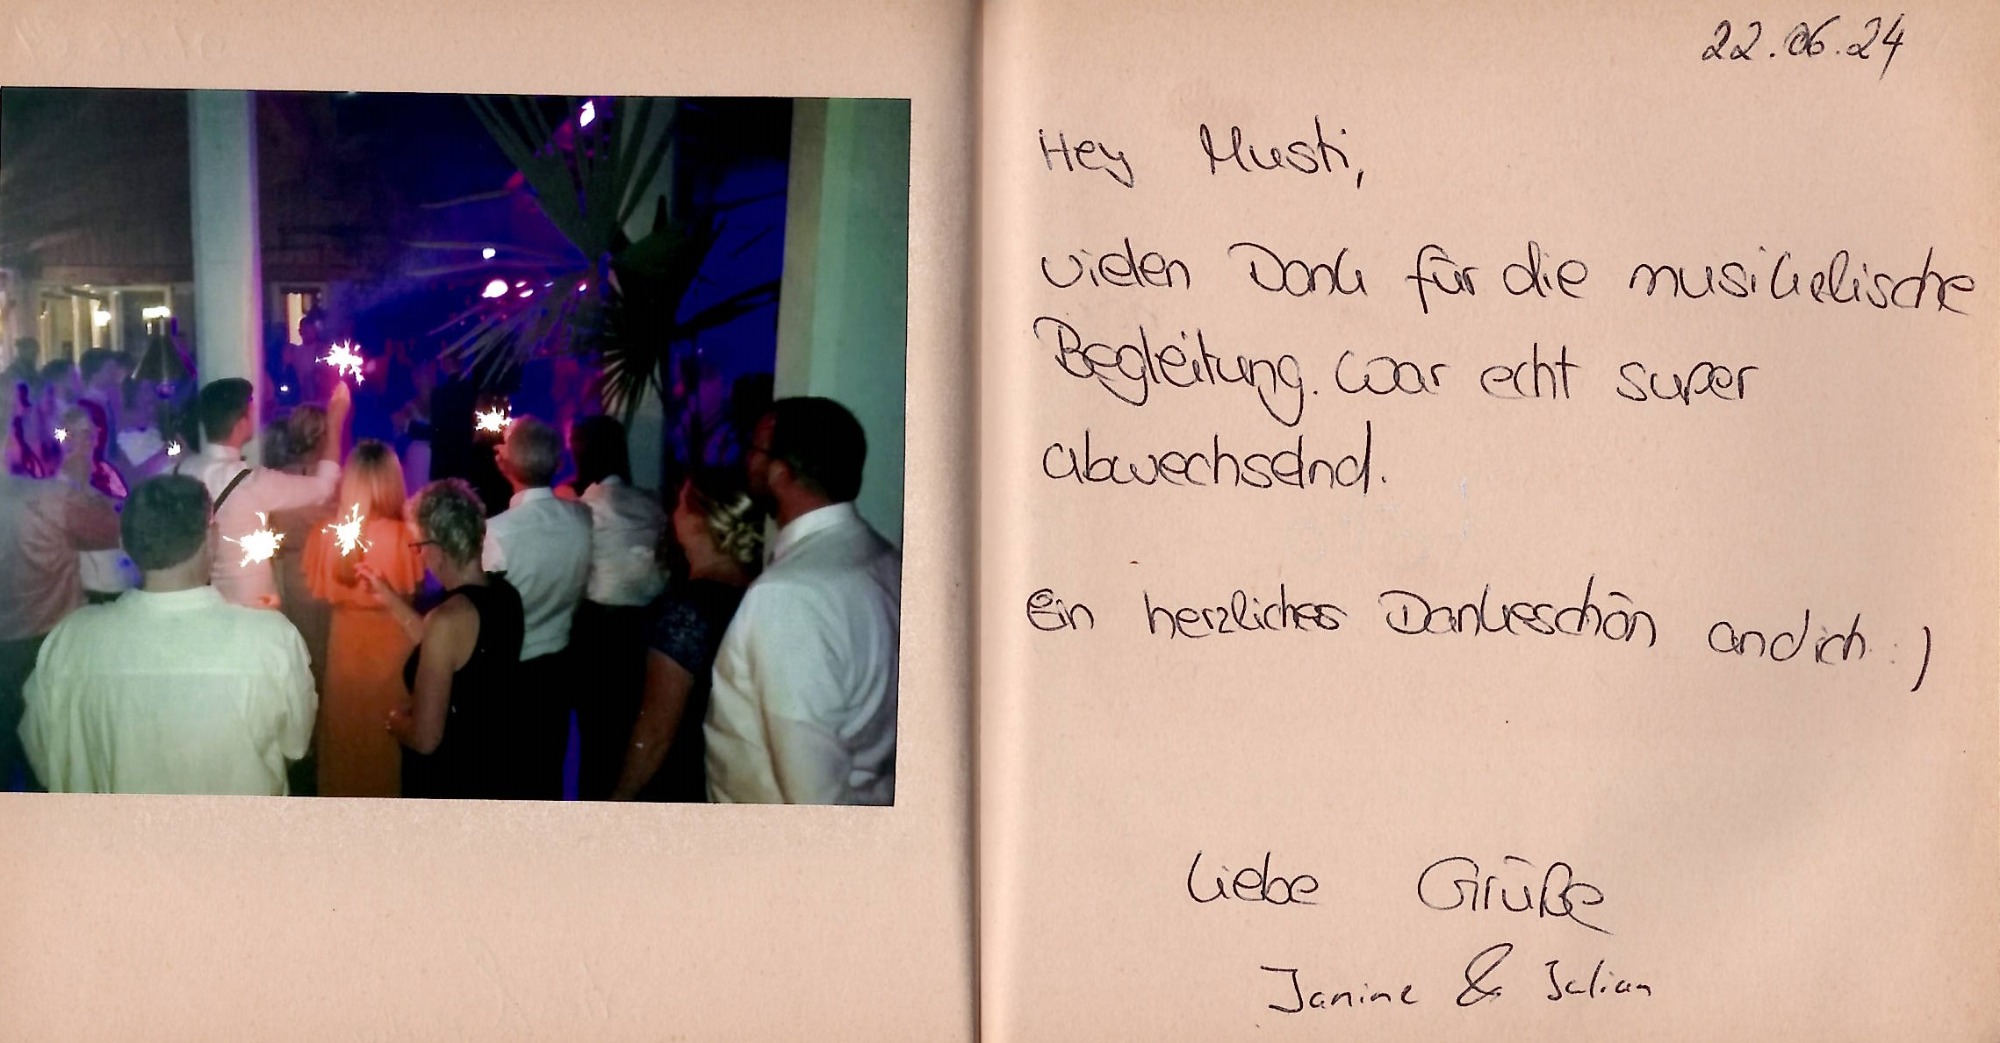 22.06.24
Hey Musti,
vielen Dank für die musikalische
Begleitung. War echt super
abwechselnd.
Ein herzliches Dankeschön an dich :)
Liebe Grüße
Janine & Julian